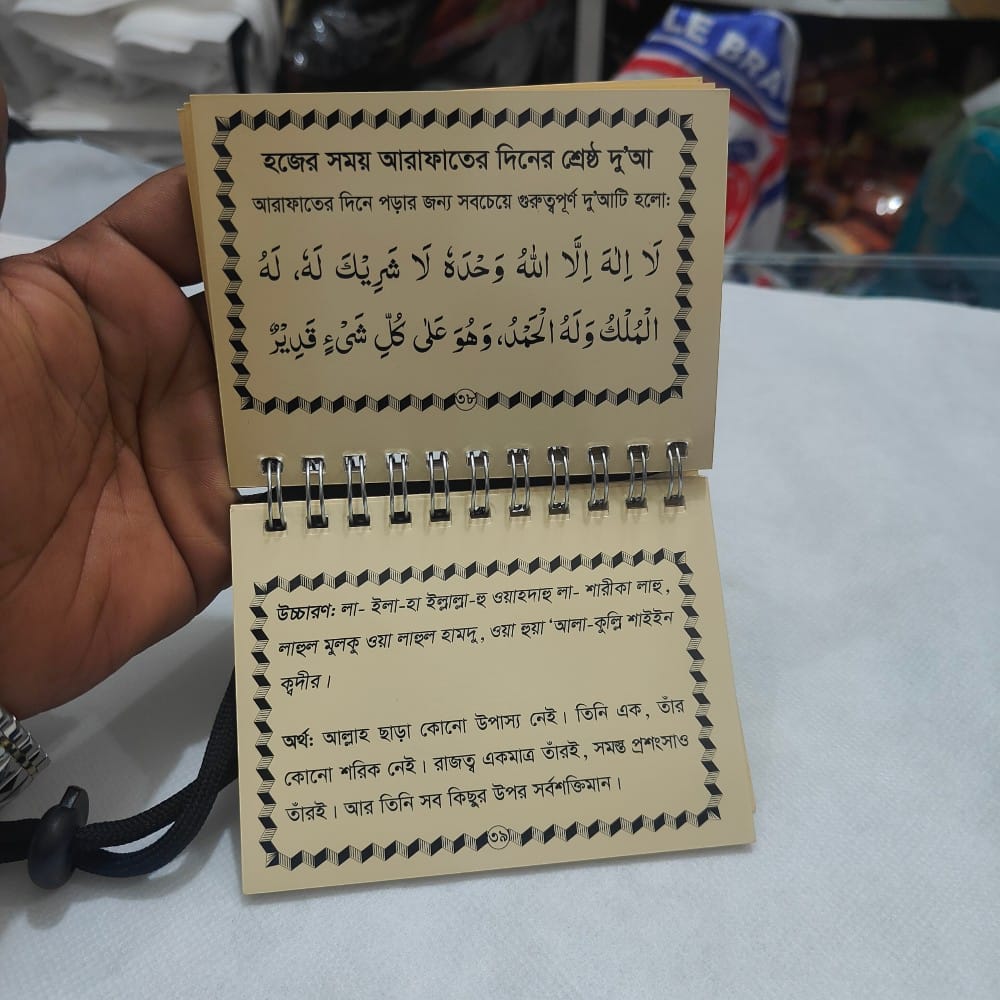 হজের সময় আরাফাতের দিনের শ্রেষ্ঠ দু'আ
আরাফাতের দিনে পড়ার জন্য সবচেয়ে গুরুত্বপূর্ণ দু'আটি হলো:
لَا اِلٰهَ اِلَّا اللهُ وَحْدَهٗ لَا شَرِيْكَ لَهٗ، لَهُ
الْمُلْكُ وَلَهُ الْحَمْدُ، وَهُوَ عَلٰى كُلِّ شَىْءٍ قَدِيْرٌ
৩৮
উচ্চারণ: লা- ইলা-হা ইল্লাল্লা-হু ওয়াহদাহু লা- শারীকা লাহু,
লাহুল মুলকু ওয়া লাহুল হামদু, ওয়া হুয়া 'আলা-কুল্লি শাইইন
ক্বদীর।
অর্থ: আল্লাহ ছাড়া কোনো উপাস্য নেই। তিনি এক, তাঁর
কোনো শরিক নেই। রাজত্ব একমাত্র তাঁরই, সমস্ত প্রশংসাও
তাঁরই। আর তিনি সব কিছুর উপর সর্বশক্তিমান।
৩৯